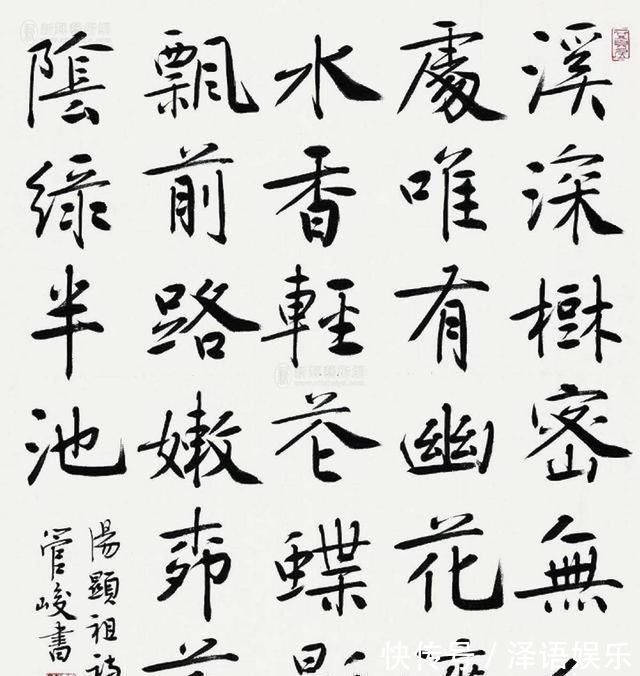 溪深樹密無
處唯有幽花
水香輕花蝶
飄前路嫩
陰綠半池
湯顯祖詩
管峻書
快传号/泽语娱乐